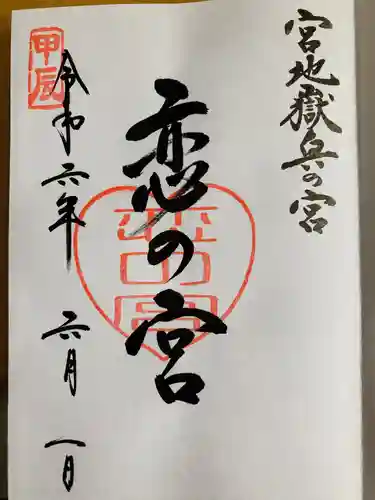 宮地嶽兵の宮
恋の宮
甲辰
令和六年 六月 一日
恋の宮